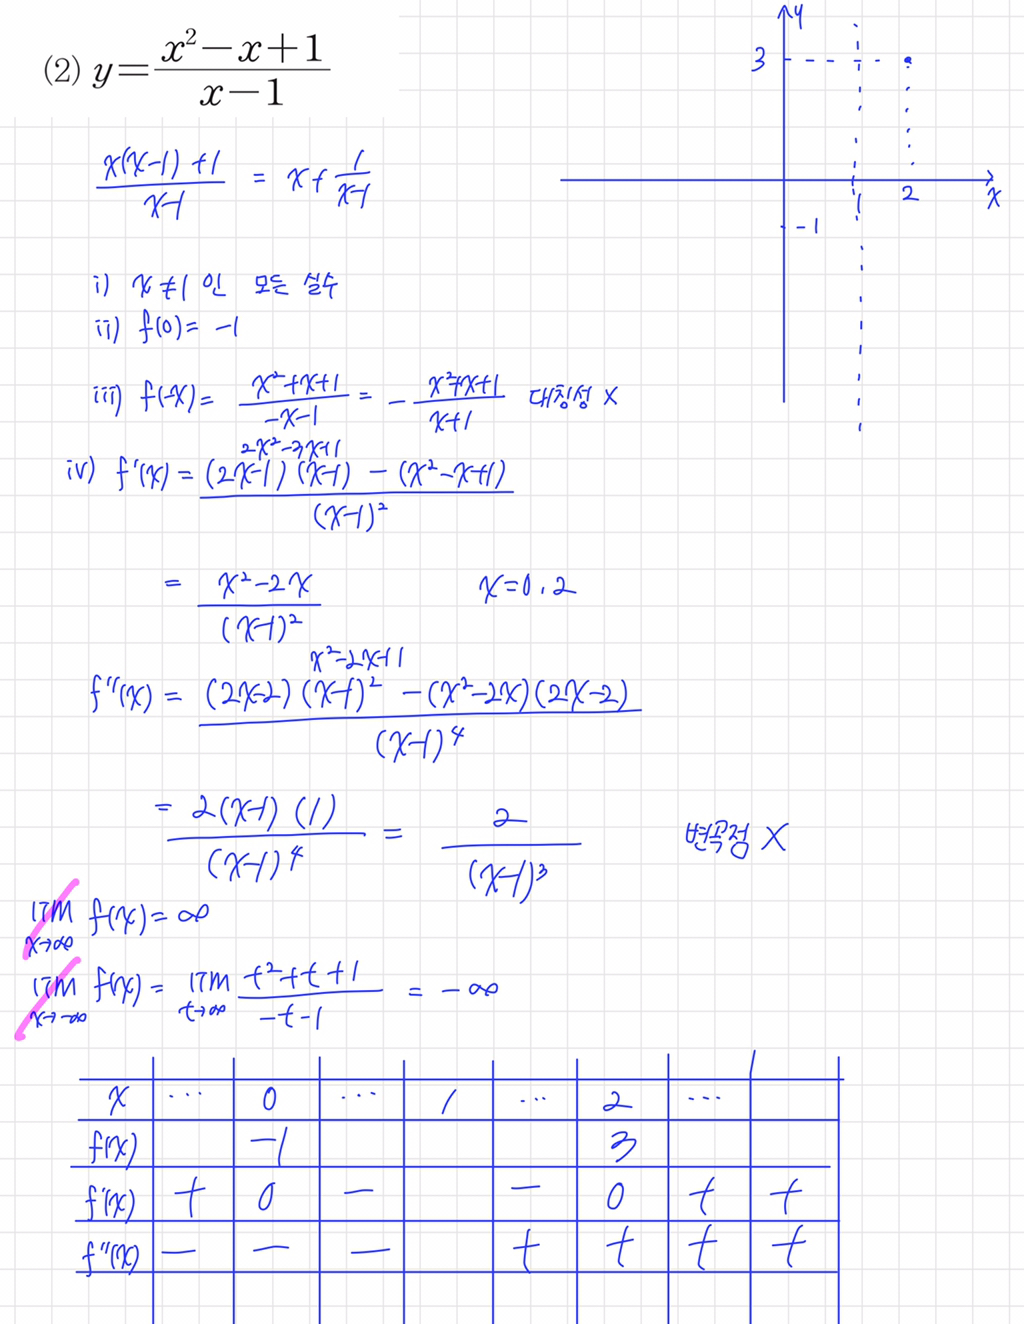 (2) y = (x² - x + 1)/(x - 1)
(x(x-1) + 1)/(x-1) = x + 1/(x-1)
i) x ≠ 1 인 모든 실수
ii) f(0) = -1
iii) f(-x) = (x²+x+1)/(-x-1) = - (x²+x+1)/(x+1) 대칭성 X
2x²-3x+1
iv) f'(x) = ((2x-1)(x-1) - (x²-x+1))/(x-1)²
= (x²-2x)/(x-1)² x=0, 2
x²-2x+1
f''(x) = ((2x-2)(x-1)² - (x²-2x)(2x-2))/(x-1)⁴
= (2(x-1)(1))/(x-1)⁴ = 2/(x-1)³ 변곡점 X
lim x→∞ f(x) = ∞
lim x→-∞ f(x) = lim t→∞ (t²+t+1)/(-t-1) = -∞
x ... 0 ... 1 ... 2 ...
f(x) -1 3
f'(x) + 0 - - 0 + +
f''(x) - - - + + + +
y
3
1 2 x
-1